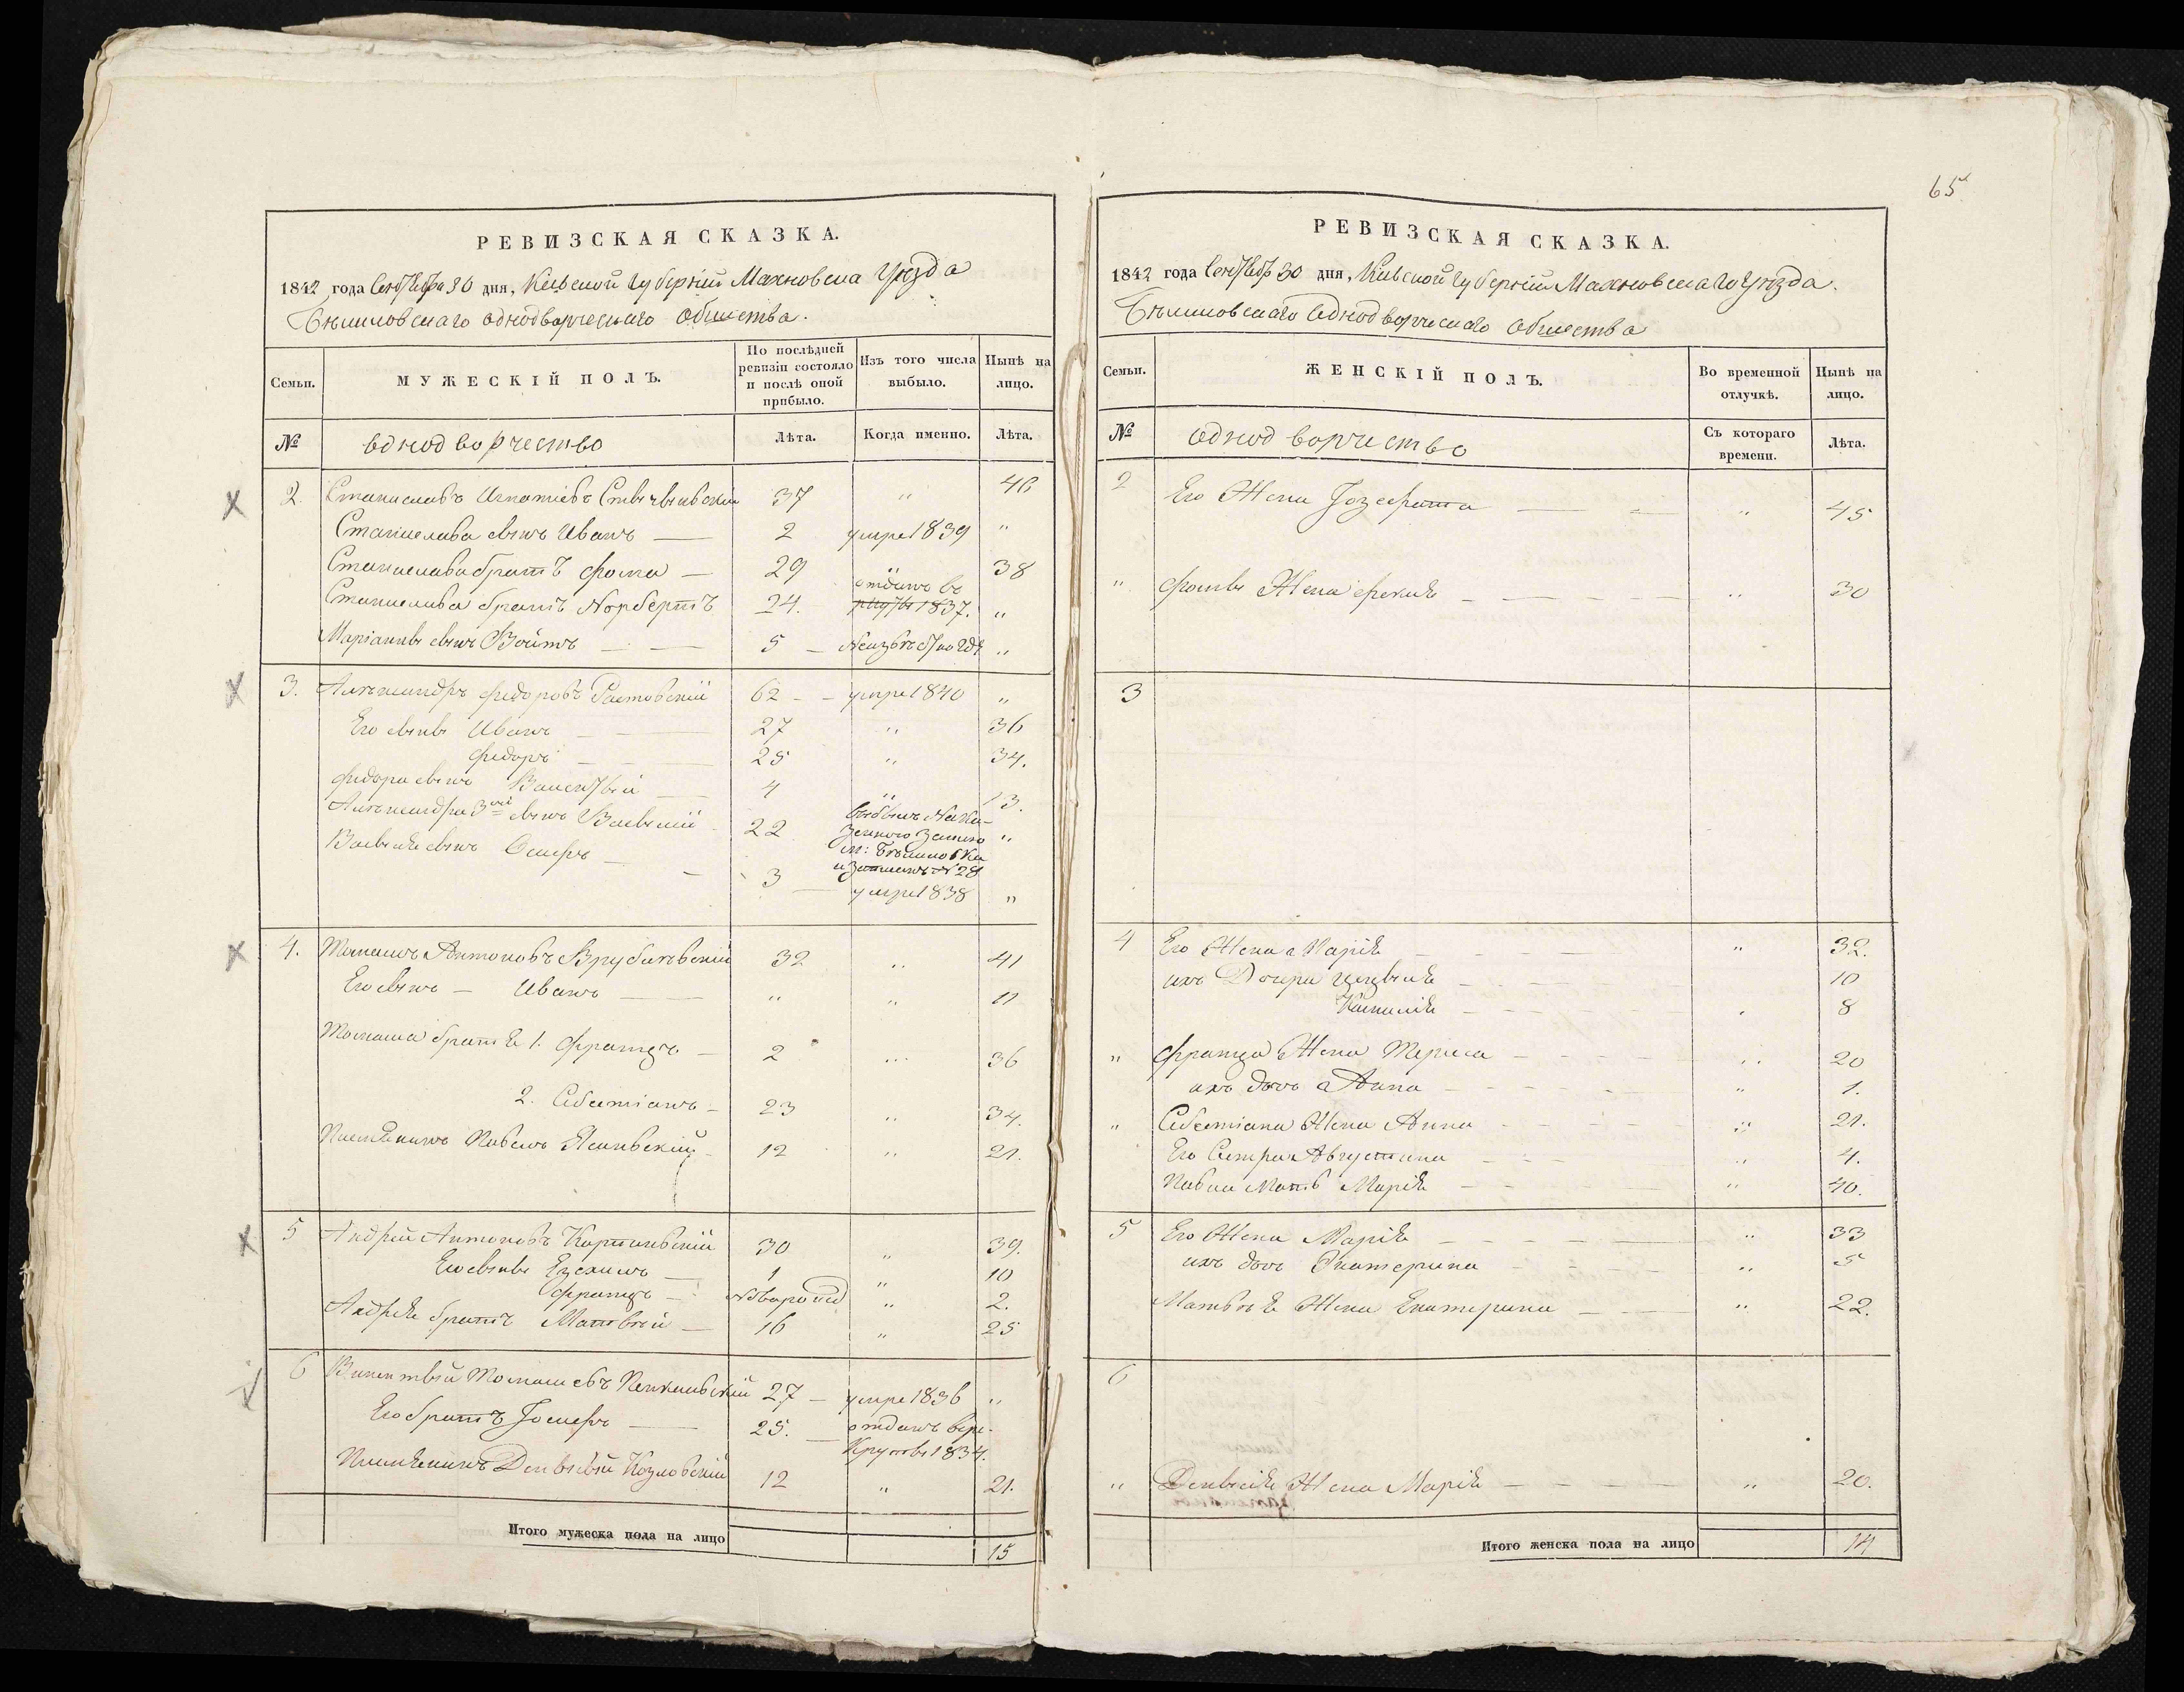 65
РЕВИЗСКАЯ СКАЗКА.
1842 года Сентября 30 дня, Кіевской губерніи Махновска Уѣзда
Бѣлиловскаго однодворческаго общества.
Семьи. МУЖЕСКІЙ ПОЛЪ. По послѣдней ревизіи состояло и послѣ оной прибыло. Изъ того числа выбыло. Нынѣ на лицо.
№ однодворчество Лѣта. Когда именно. Лѣта.
2. Станиславъ Игнатіевъ 37 " 46
Станислава сынъ Иванъ — 2 умре 1839 "
Станислава братъ Фома — 29 " 38
Станислава братъ Норбертъ 24. отданъ въ 1837. "
Маріанны сынъ Войтъ — — 5 — "
3. Александръ Федоровъ Ростовскій 62 — умре 1840 "
Его сыны Иванъ — 27 " 36
Федоръ — 25 " 34.
Федора сынъ Викентій — 4 " 13.
Александра 3ой сынъ Василій 22 "
Василія сынъ Осипъ — 3 — умре 1838 "
4. Томашъ Антоновъ Врублевскій 32 " 41
Его сынъ — Иванъ — " " 11
Томаша братья 1. Францъ — 2 " 36
2. Себестіанъ — 23 " 34.
Племянникъ Павелъ 12 " 21.
5 Андрей Антоновъ 30 " 39.
Его сыны — 1 " 10
Францъ — новорожд " 2.
Андрея братъ Матвѣй — 16 " 25
6 Викентій Томашевъ 27 — умре 1836 "
Его братъ Іосифъ — 25. — отданъ въ ре-
круты 1834.
Племянникъ Козловскій 12 " 21.
Итого мужеска пола на лицо 15
РЕВИЗСКАЯ СКАЗКА.
1842 года Сентябр 30 дня, Кіевской губерніи Махновскаго Уѣзда.
Бѣлиловскаго Однодворческаго общества
Семьи. ЖЕНСКІЙ ПОЛЪ. Во временной отлучкѣ. Нынѣ на лицо.
№ однодворчество Съ котораго времени. Лѣта.
2 Его Жена Іозефата — " 45
" Фомы Жена — " 30
3
4 Его Жена Марія — " 32.
ихъ Дочери 10
Камилія — " 8
" Франца Жена Тереса — " 20
ихъ дочь Анна — " 1.
" Себестіана Жена Анна — " 21.
Его Сестра Августина — " 4.
Павла Мать Марія — " 40.
5 Его Жена Марія — " 33
ихъ дочь Екатерина — " 5
Матвѣя Жена Екатерина — " 22.
6
" Жена Марія — " 20.
Итого женска пола на лицо 14